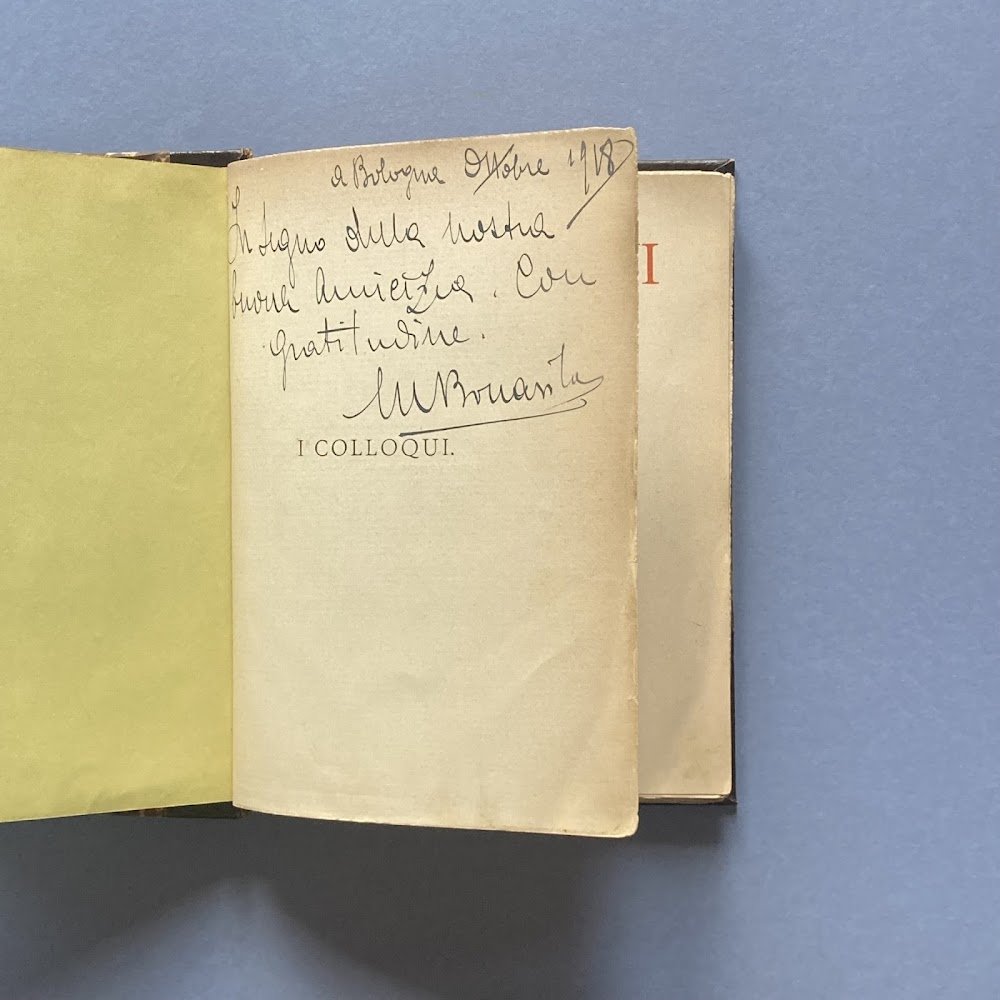 a Bologna Ottobre 1918
In segno della nostra
buona Amicizia. Con
gratitudine.
I COLLOQUI.
I